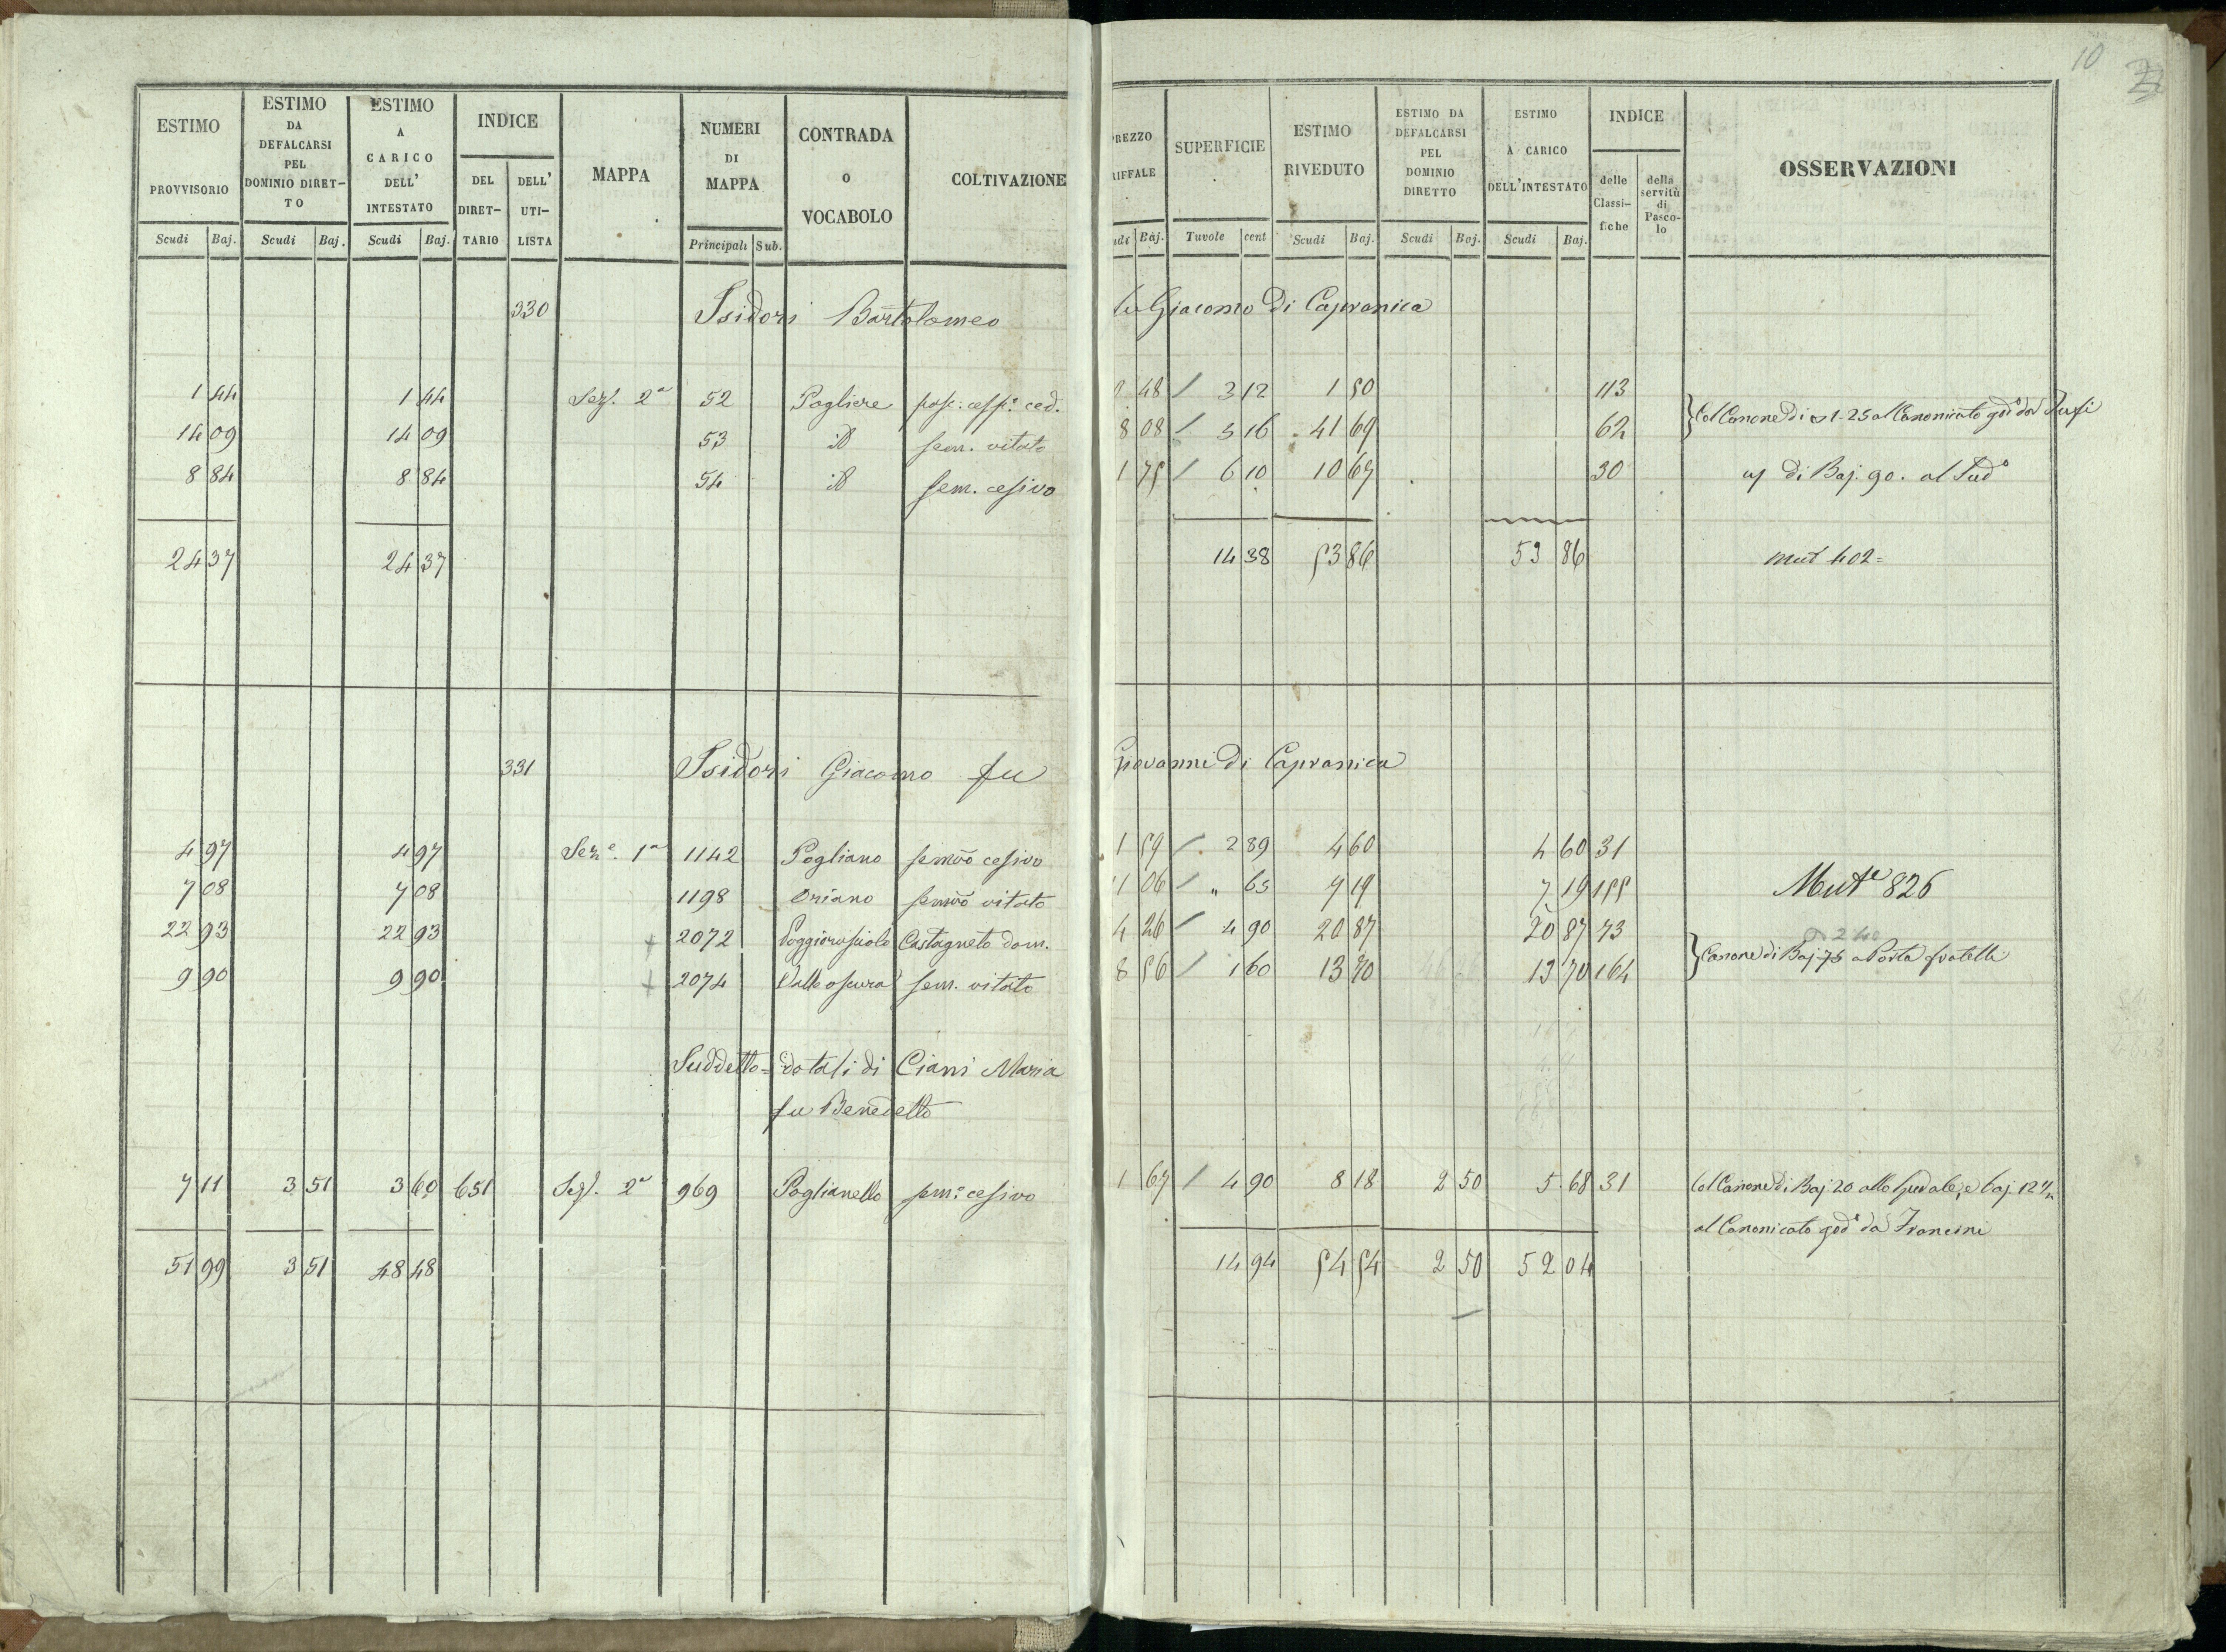 10
ESTIMO PROVVISORIO Scudi Baj.
ESTIMO DA DEFALCARSI PEL DOMINIO DIRET-TO Scudi Baj.
ESTIMO A CARICO DELL' INTESTATO Scudi Baj.
INDICE DEL DIRET-TARIO DELL' UTI-LISTA
MAPPA
NUMERI DI MAPPA Principali Sub.
CONTRADA O VOCABOLO
COLTIVAZIONE
REZZO RIFFALE udi Baj.
SUPERFICIE Tavole cent
ESTIMO RIVEDUTO Scudi Baj.
ESTIMO DA DEFALCARSI PEL DOMINIO DIRETTO Scudi Baj.
ESTIMO A CARICO DELL'INTESTATO Scudi Baj.
INDICE delle Classi-fiche della servitù di Pasco-lo
OSSERVAZIONI
330 Isidori Bartolomeo fu Giacomo di Capranica
1 44 1 44 Sez. 2a 52 Pogliere pasc: cesp: ced. 48 / 3 12 1 50 113
Col Canone di 1-25 al Canonicato god: da Rufi
14 09 14 09 53 id sem. vitato 8 08 / 3 16 41 69 62
8 84 8 84 54 id sem. cesivo 1 75 / 6 10 10 67 30 di Baj. 90. al Sud°
24 37 24 37 14 38 53 86 53 86 mut 402=
331 Isidori Giacomo fu Giovanni di Capranica
4 97 4 97 Sez.e 1a 1142 Pogliano semvo cesivo 1 59 / 2 89 4 60 4 60 31
7 08 7 08 1198 Oriano semvo vitato 11 06 / " 65 7 19 7 19 155 Mut.e 826
22 93 22 93 + 2072 Poggiorusciolo Castagneto dom. 4 26 / 4 90 20 87 20 87 73
2 40
Canone di Baj 75 a Porta fratelli
9 90 9 90 + 2074 Valle oscura sem. vitato 8 56 / 1 60 13 70 13 70 164
Suddetto= dotali di Ciani Maria
fu Benedetto
7 11 3 51 3 60 651 Sez. 2a 969 Poglianello sem:o cesivo 1 67 / 4 90 8 18 2 50 5 68 31 Col Canone di Baj. 20 allo Spedale, e baj. 12½
al Canonicato god: da Francini
51 99 3 51 48 48 14 94 54 54 2 50 52 04